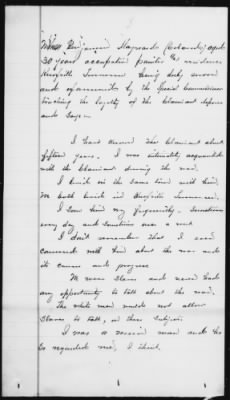 Witness Benjamin Haywood (Colored) aged
30 years occupation painter residence
Knoxville Tennessee being duly sworn
and examined by the Special Commissioner
touching the loyalty of the Claimant deposes
and says—
I have known the Claimant about
fifteen years. I was intimately acquainted
with the Claimant during the war.
I lived in the same town with him.
We both lived in Knoxville Tennessee.
I saw him very frequently. Sometimes
every day and sometimes once a week
I don't remember that I ever
conversed with him about the war and
its causes and progress
We were slaves and never had
any opportunity to talk about the war.
The white men would not allow
slaves to talk, on these subjects.
I was a union man and he
so regarded me, I think.